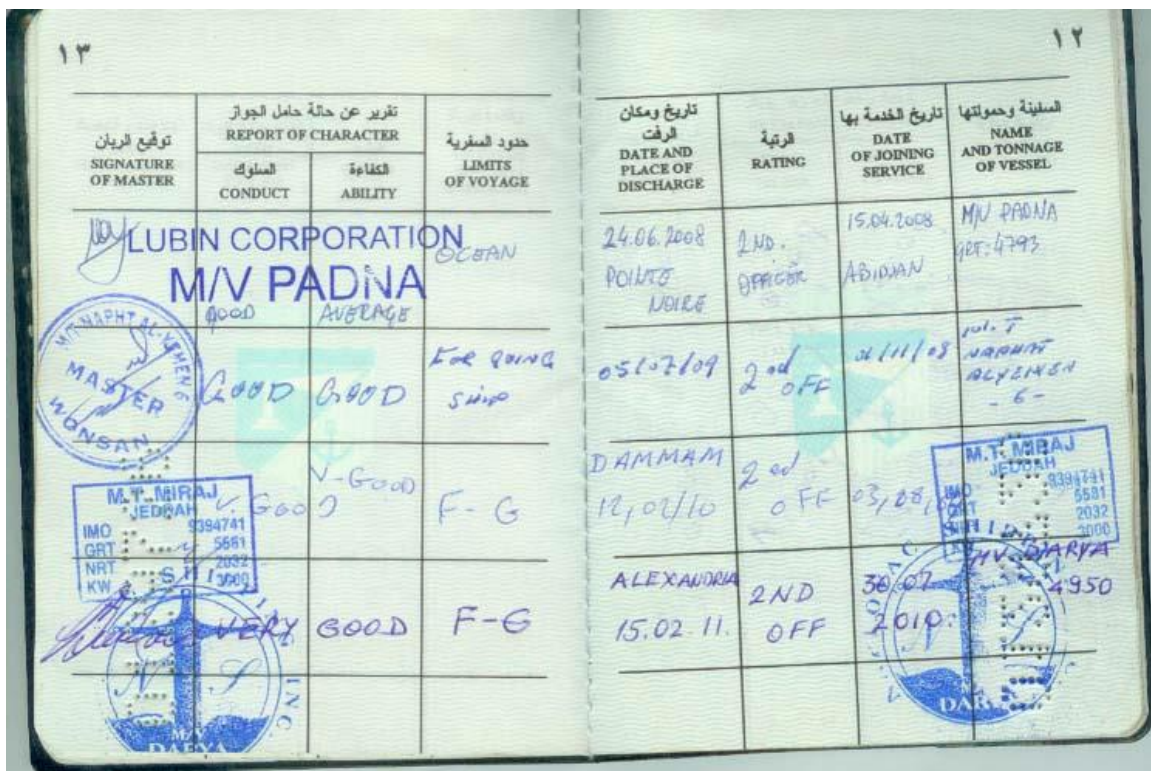 ١٣
توقيع الربان
SIGNATURE
OF MASTER
تقرير عن حالة حامل الجواز
REPORT OF CHARACTER
السلوك
CONDUCT
الكفاءة
ABILITY
حدود السفرية
LIMITS
OF VOYAGE
LUBIN CORPORATION
M/V PADNA
GOOD
AVERAGE
OCEAN
MASTER
WONSAN
GOOD
GOOD
SHIP
M.T. MIRAJ
JEDDAH
IMO 9394741
GRT 5581
NRT 2032
KW 3000
V. GOOD
V-GOOD
F-G
VERY GOOD
F-G
INC.
M/V
DARYA
١٢
تاريخ ومكان
الرفت
DATE AND
PLACE OF
DISCHARGE
الرتبة
RATING
تاريخ الخدمة بها
DATE
OF JOINING
SERVICE
السفينة وحمولتها
NAME
AND TONNAGE
OF VESSEL
24.06.2008
POINTE
NOIRE
2ND.
OFFICER
15.04.2008
ABIDJAN
M/V PADNA
GRT: 4793
05/07/09
2nd
OFF
- 6 -
DAMMAM
12,02/10
2nd
OFF
M.T. MIRAJ
JEDDAH
9394741
5581
2032
3000
ALEXANDRIA
15.02.11.
2ND
OFF
30.07
2010.
MV DARYA
4950